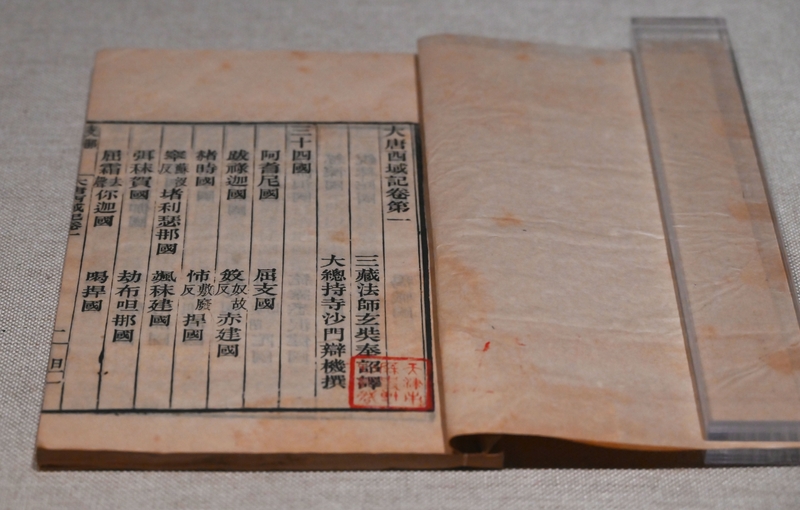 大唐西域記卷第一
三藏法師玄奘奉詔譯
大總持寺沙門辯機撰
三十四國
阿耆尼國 屈支國
跋祿迦國 笯奴故反赤建國
赭時國 㤄敷廢反捍國
窣蘇沒反堵利瑟那國 颯秣建國
弭秣賀國 劫布呾那國
屈霜你迦國 喝捍國
大唐西域記卷一